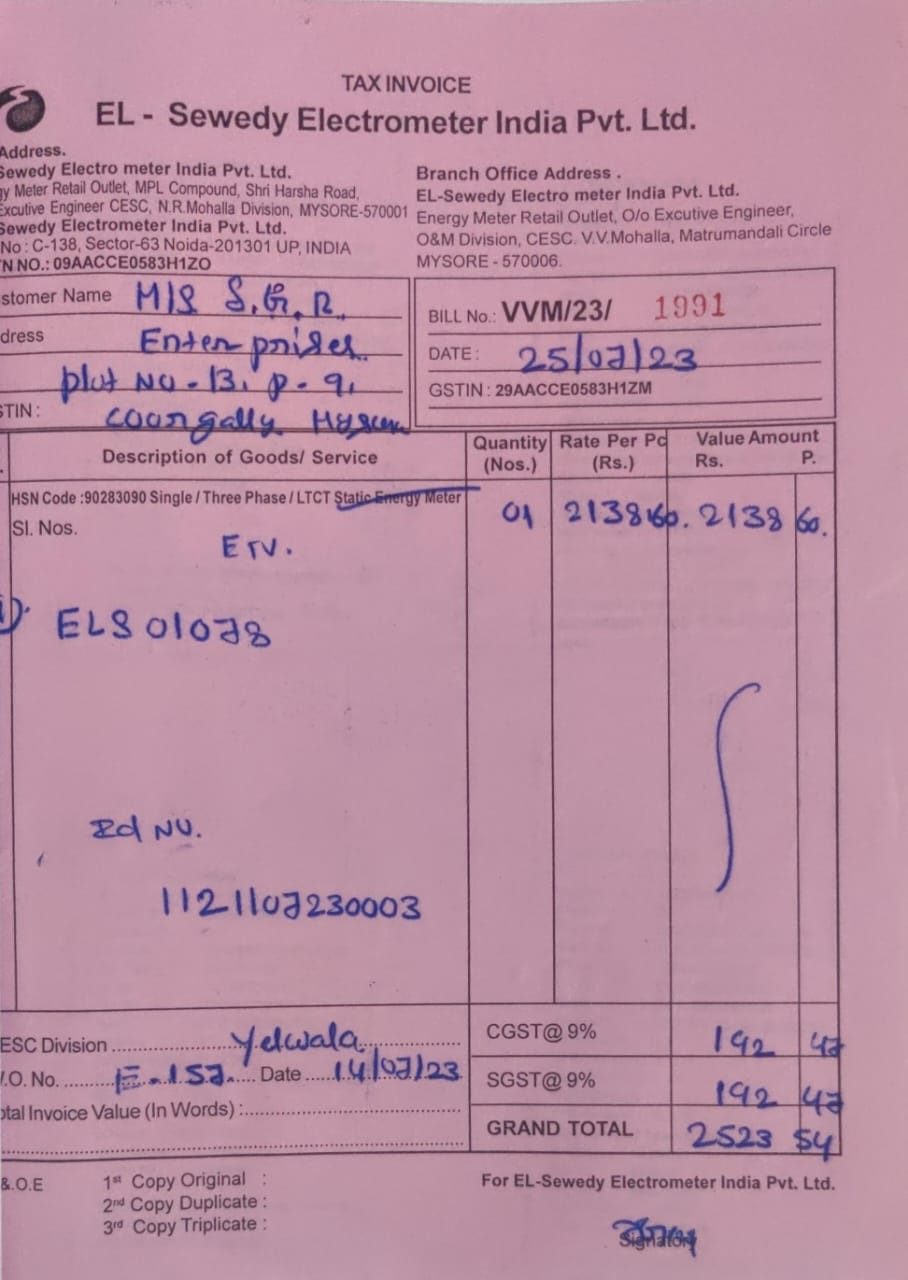 TAX INVOICE
EL - Sewedy Electrometer India Pvt. Ltd.
Address.
Sewedy Electro meter India Pvt. Ltd.
gy Meter Retail Outlet, MPL Compound, Shri Harsha Road,
Excutive Engineer CESC, N.R.Mohalla Division, MYSORE-570001
Sewedy Electrometer India Pvt. Ltd.
No : C-138, Sector-63 Noida-201301 UP, INDIA
N NO.: 09AACCE0583H1ZO
Branch Office Address .
EL-Sewedy Electro meter India Pvt. Ltd.
Energy Meter Retail Outlet, O/o Excutive Engineer,
O&M Division, CESC. V.V.Mohalla, Matrumandali Circle
MYSORE - 570006.
stomer Name M/S S.G.R.
dress Enterprises
plot No - 13, P - 9,
STIN : Coorgally Mysuru
BILL No.: VVM/23/ 1991
DATE : 25/07/23
GSTIN : 29AACCE0583H1ZM
Description of Goods/ Service Quantity (Nos.) Rate Per Pc (Rs.) Value Amount Rs. P.
HSN Code :90283090 Single / Three Phase / LTCT Static Energy Meter
Sl. Nos. 01 2138 60. 2138 60.
ETV.
1). ELS01078
Rd No.
1121107230003
ESC Division Yelwala
.O. No. E-157. Date 14/07/23
otal Invoice Value (In Words) :
CGST@ 9% 192 47
SGST@ 9% 192 47
GRAND TOTAL 2523 54
&.O.E
1st Copy Original :
2nd Copy Duplicate :
3rd Copy Triplicate :
For EL-Sewedy Electrometer India Pvt. Ltd.
Signatory